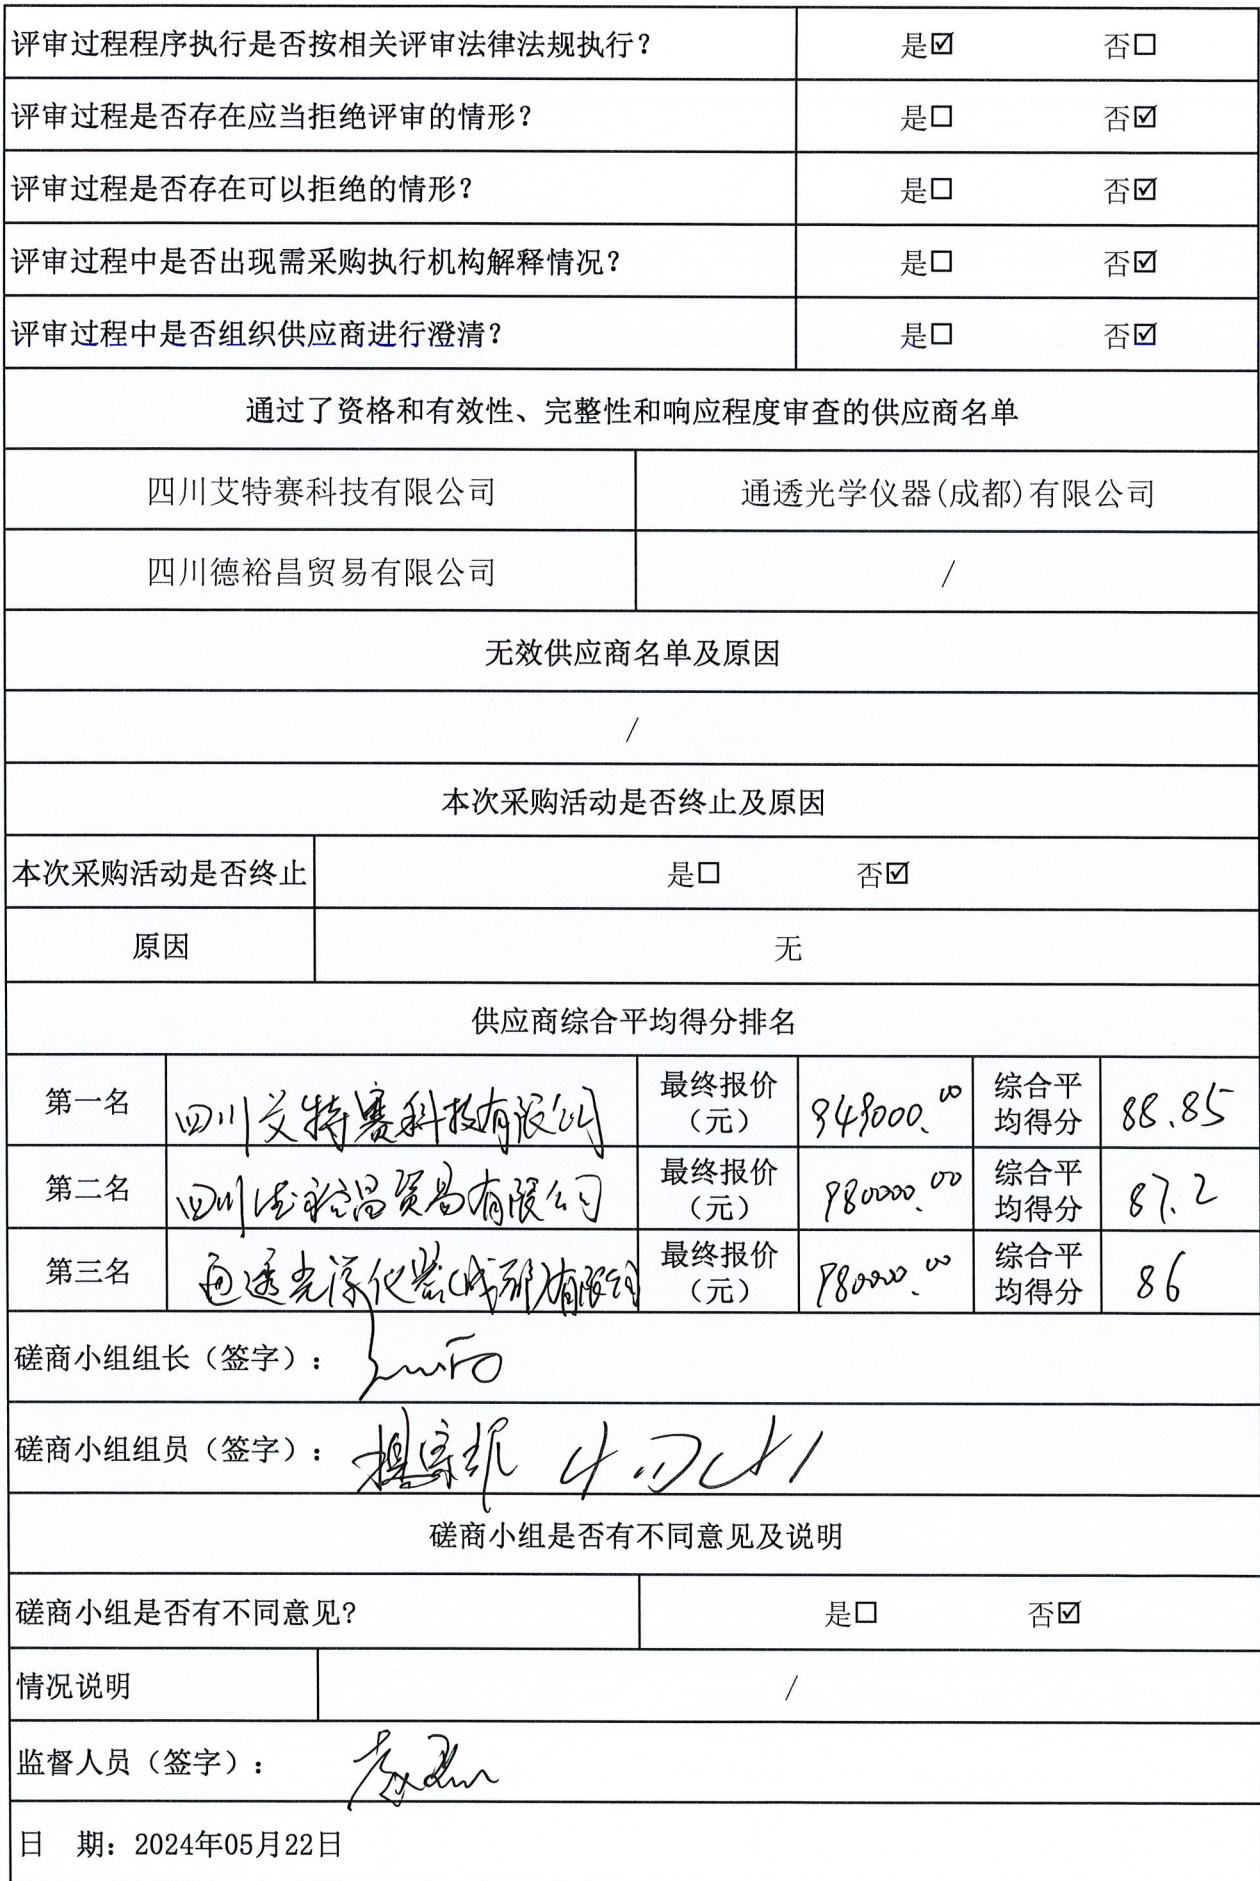 评审过程程序执行是否按相关评审法律法规执行？ 是☑ 否☐
评审过程是否存在应当拒绝评审的情形？ 是☐ 否☑
评审过程是否存在可以拒绝的情形？ 是☐ 否☑
评审过程中是否出现需采购执行机构解释情况？ 是☐ 否☑
评审过程中是否组织供应商进行澄清？ 是☐ 否☑
通过了资格和有效性、完整性和响应程度审查的供应商名单
四川艾特赛科技有限公司 通透光学仪器(成都)有限公司
四川德裕昌贸易有限公司 /
无效供应商名单及原因
/
本次采购活动是否终止及原因
本次采购活动是否终止 是☐ 否☑
原因 无
供应商综合平均得分排名
第一名 四川艾特赛科技有限公司 最终报价（元） 949000.00 综合平均得分 88.85
第二名 四川德裕昌贸易有限公司 最终报价（元） 980000.00 综合平均得分 87.2
第三名 通透光学仪器(成都)有限公司 最终报价（元） 980000.00 综合平均得分 86
磋商小组组长（签字）：
磋商小组组员（签字）：
磋商小组是否有不同意见及说明
磋商小组是否有不同意见？ 是☐ 否☑
情况说明 /
监督人员（签字）：
日 期：2024年05月22日